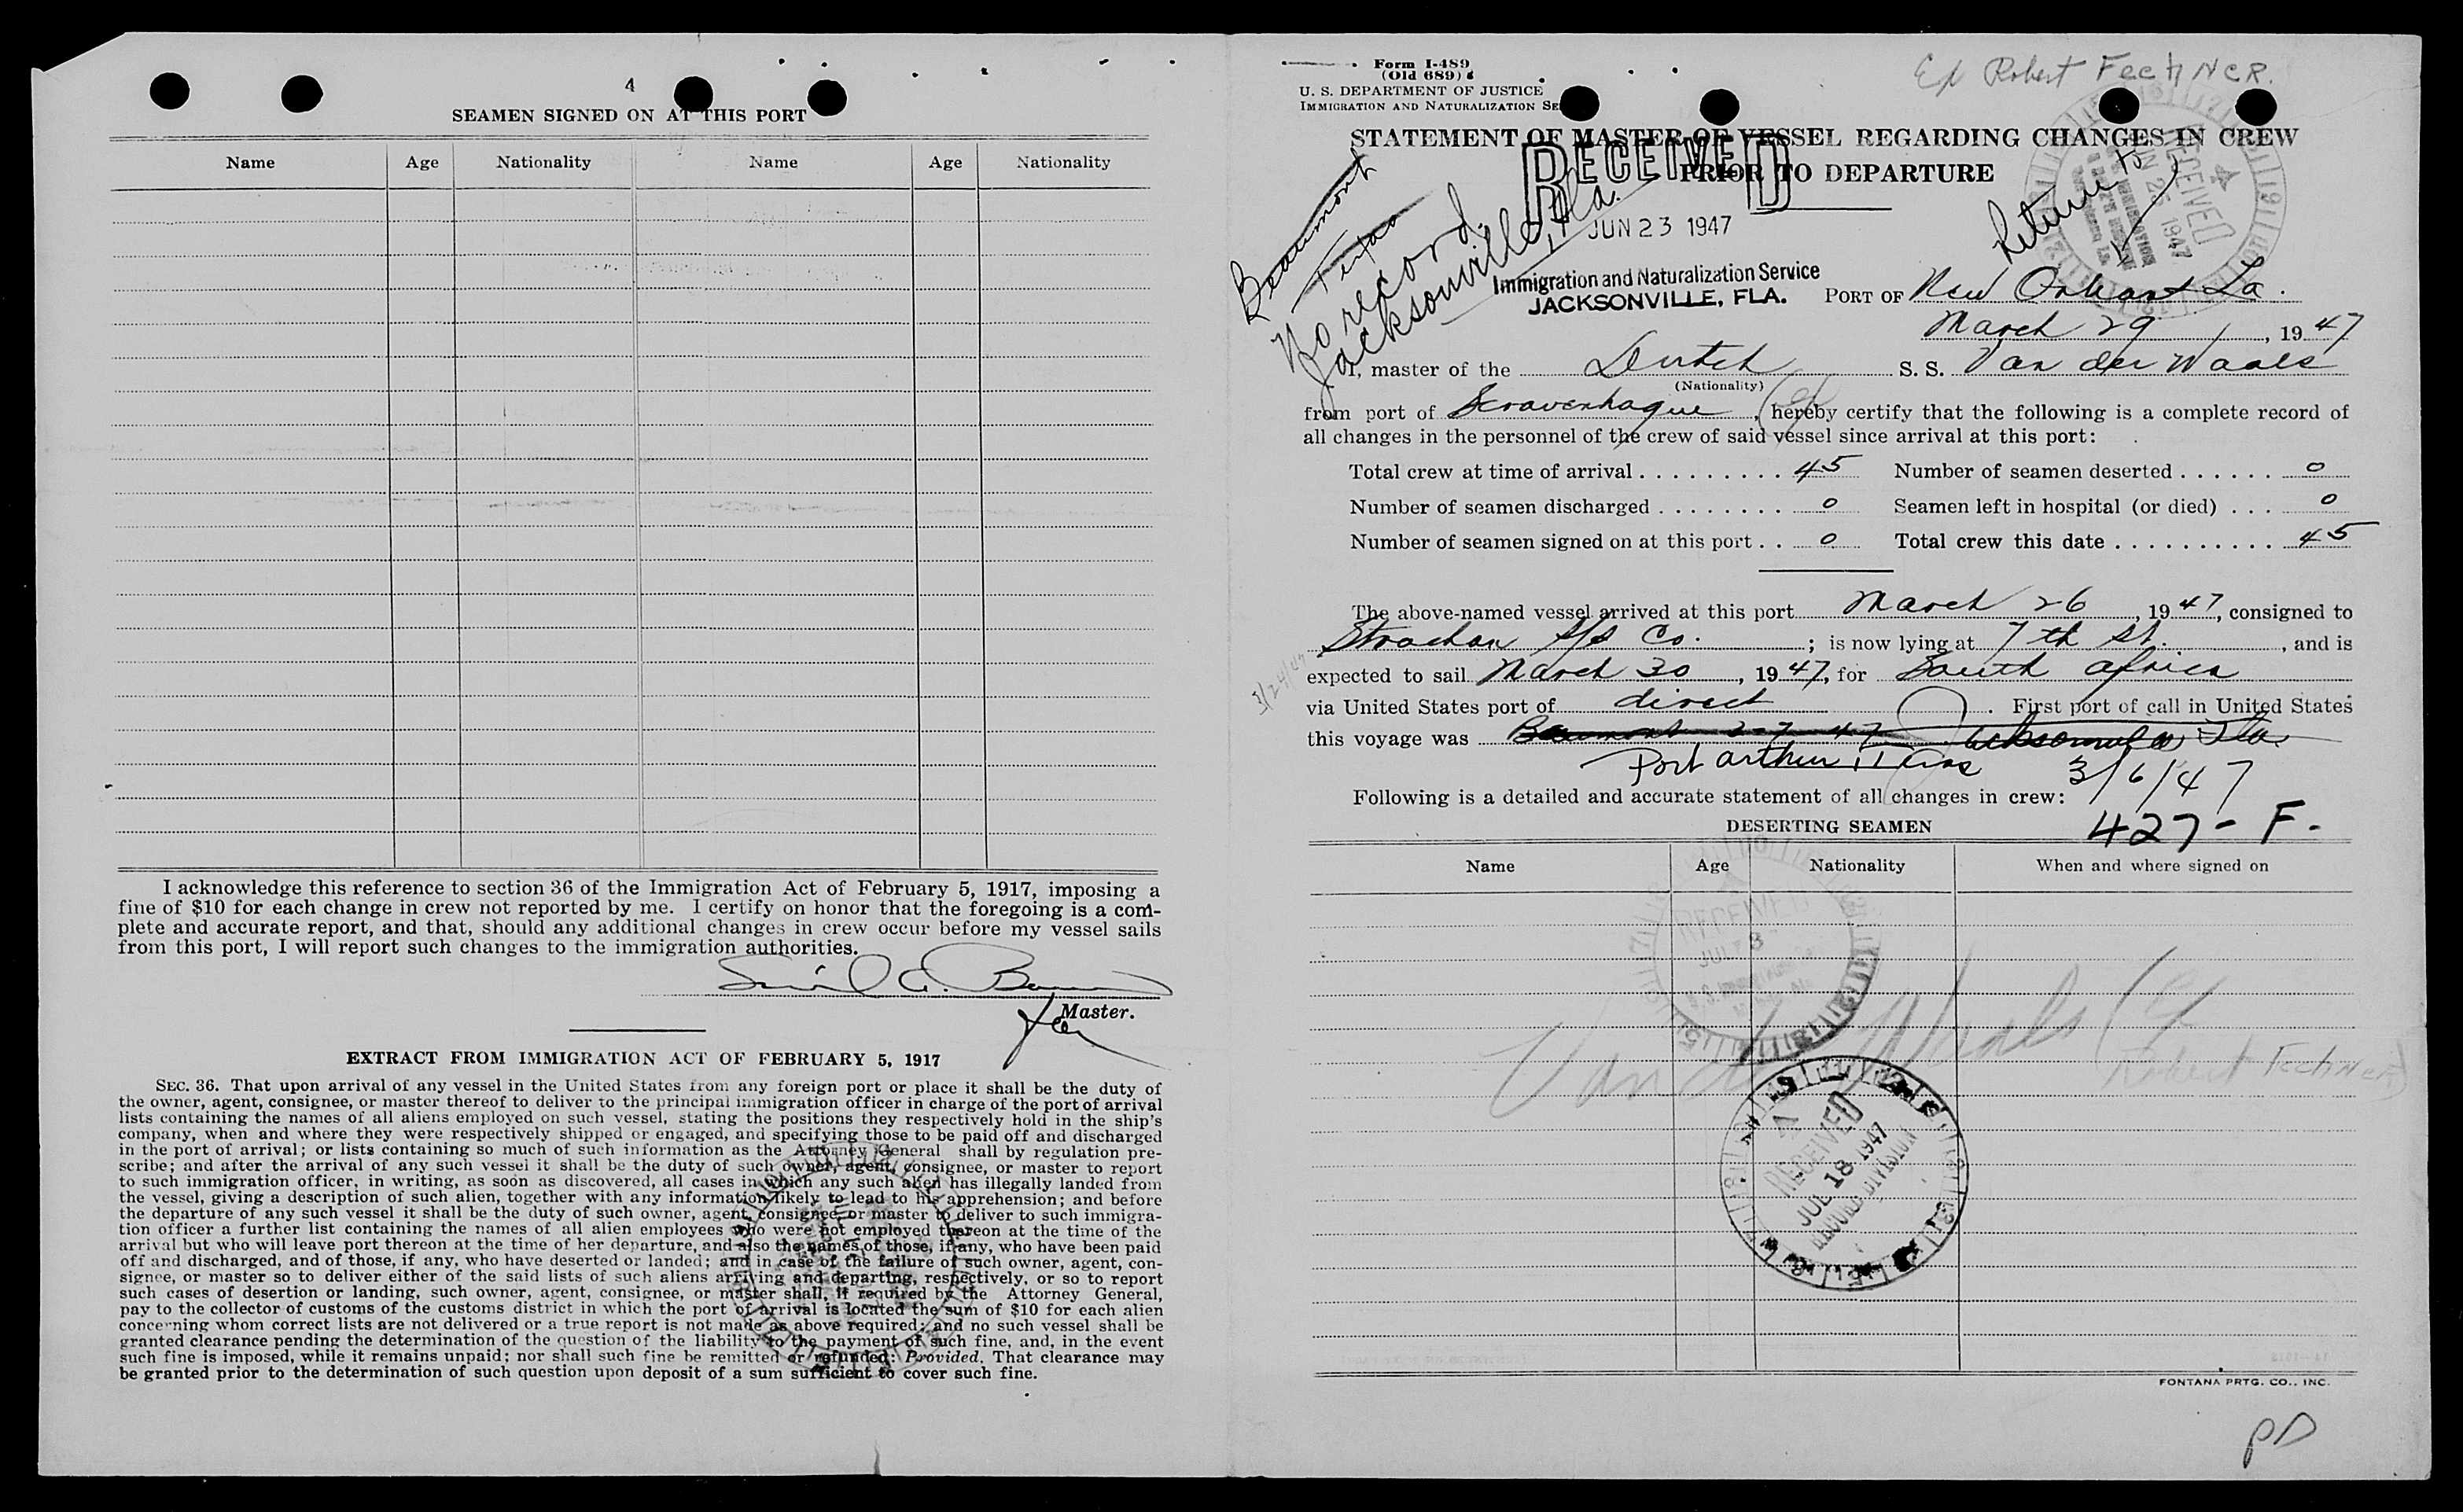 4
SEAMEN SIGNED ON AT THIS PORT
Name Age Nationality Name Age Nationality
I acknowledge this reference to section 36 of the Immigration Act of February 5, 1917, imposing a
fine of $10 for each change in crew not reported by me. I certify on honor that the foregoing is a com-
plete and accurate report, and that, should any additional changes in crew occur before my vessel sails
from this port, I will report such changes to the immigration authorities.
Master.
EXTRACT FROM IMMIGRATION ACT OF FEBRUARY 5, 1917
SEC. 36. That upon arrival of any vessel in the United States from any foreign port or place it shall be the duty of
the owner, agent, consignee, or master thereof to deliver to the principal immigration officer in charge of the port of arrival
lists containing the names of all aliens employed on such vessel, stating the positions they respectively hold in the ship's
company, when and where they were respectively shipped or engaged, and specifying those to be paid off and discharged
in the port of arrival; or lists containing so much of such information as the Attorney General shall by regulation pre-
scribe; and after the arrival of any such vessel it shall be the duty of such owner, agent, consignee, or master to report
to such immigration officer, in writing, as soon as discovered, all cases in which any such alien has illegally landed from
the vessel, giving a description of such alien, together with any information likely to lead to his apprehension; and before
the departure of any such vessel it shall be the duty of such owner, agent, consignee, or master to deliver to such immigra-
tion officer a further list containing the names of all alien employees who were not employed thereon at the time of the
arrival but who will leave port thereon at the time of her departure, and also the names of those, if any, who have been paid
off and discharged, and of those, if any, who have deserted or landed; and in case of the failure of such owner, agent, con-
signee, or master so to deliver either of the said lists of such aliens arriving and departing, respectively, or so to report
such cases of desertion or landing, such owner, agent, consignee, or master shall, if required by the Attorney General,
pay to the collector of customs of the customs district in which the port of arrival is located the sum of $10 for each alien
concerning whom correct lists are not delivered or a true report is not made as above required; and no such vessel shall be
granted clearance pending the determination of the question of the liability to the payment of such fine, and, in the event
such fine is imposed, while it remains unpaid; nor shall such fine be remitted or refunded: Provided, That clearance may
be granted prior to the determination of such question upon deposit of a sum sufficient to cover such fine.
Form I-489
(Old 689)
U. S. DEPARTMENT OF JUSTICE
IMMIGRATION AND NATURALIZATION SE
Ex Robert FecHNER.
STATEMENT OF MASTER OF VESSEL REGARDING CHANGES IN CREW
PRIOR TO DEPARTURE
RECEIVED
JUN 23 1947
Immigration and Naturalization Service
JACKSONVILLE, FLA.
Beaumont
Texas
No record
Jacksonville, Fla.
Return to
RECEIVED
JUN 26 1947
PORT OF New Orleans La.
March 29, 1947
I, master of the Dutch S. S. Van der Waals
(Nationality)
from port of Scravenhague, hereby certify that the following is a complete record of
all changes in the personnel of the crew of said vessel since arrival at this port:
Total crew at time of arrival . . . . . . . . . . 45 Number of seamen deserted . . . . . . 0
Number of seamen discharged . . . . . . . . 0 Seamen left in hospital (or died) . . . 0
Number of seamen signed on at this port . . 0 Total crew this date . . . . . . . . . . 45
The above-named vessel arrived at this port March 26, 1947, consigned to
Strachan S/S Co. ; is now lying at 7th St. , and is
3/24/47
expected to sail March 30, 1947, for South Africa
via United States port of direct . First port of call in United States
this voyage was Beaumont 3-7-47 Jacksonville Fla.
Port Arthur, Texas 3/6/47
Following is a detailed and accurate statement of all changes in crew:
427- F.
DESERTING SEAMEN
Name Age Nationality When and where signed on
RECEIVED
JUL 8
Van der Waals (Ex
Robert FecHNER)
RECEIVED
JUL 18 1947
RECORD DIVISION
FONTANA PRTG. CO., INC.
PD